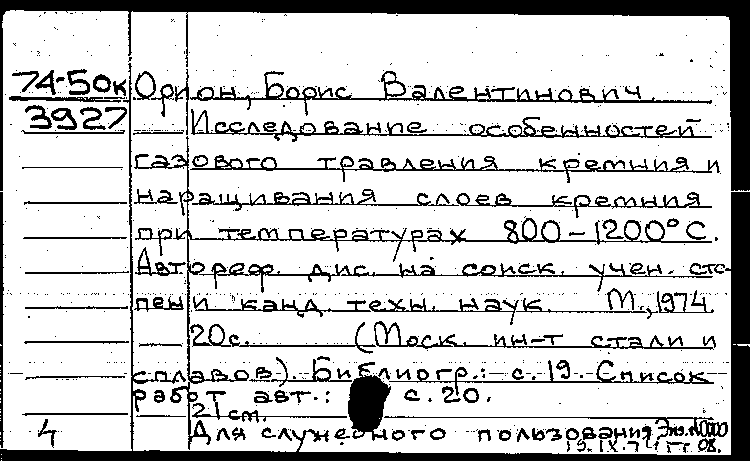 74-50к Орион, Борис Валентинович.
3927 Исследование особенностей
газового травления кремния и
наращивания слоев кремния
при температурах 800-1200°С.
Автореф. дис. на соиск. учен. сте-
пени канд. техн. наук. М., 1974.
20с. (Моск. ин-т стали и
сплавов). Библиогр.: с. 19. Список
работ авт.: с. 20.
21 см.
4 Для служебного пользования. Экз.